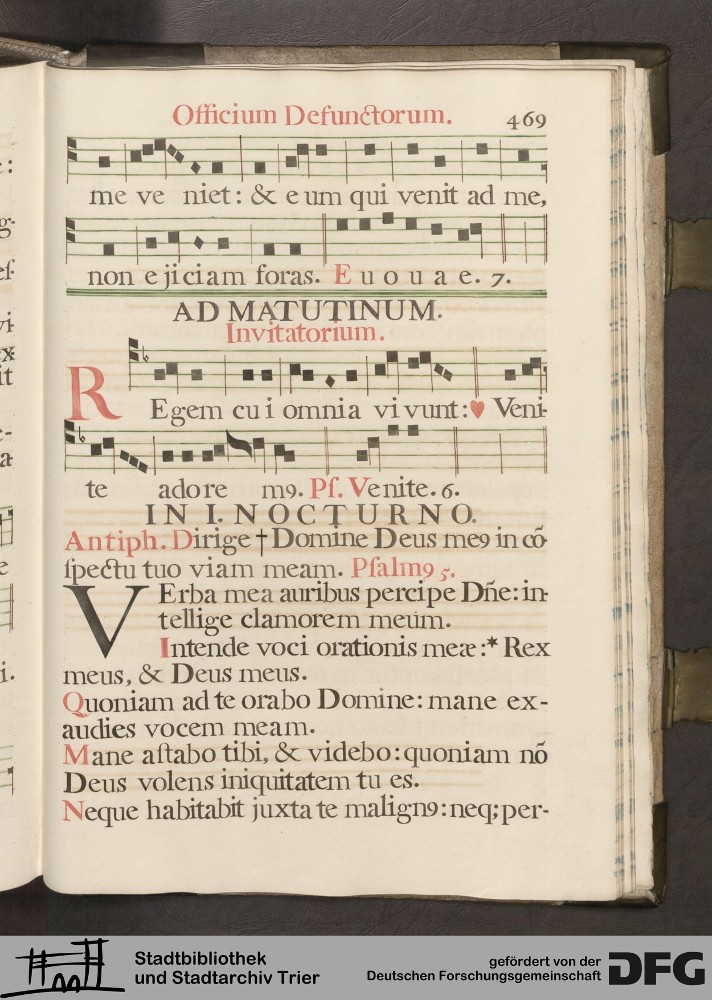 Officium Defunctorum.
469
me ve niet: & e um qui venit ad me,
non e jiciam foras. E u o u a e. 7.
AD MATUTINUM.
Invitatorium.
REgem cu i omnia vi vunt: ♥ Veni-
te adore m9. Pſ. Venite. 6.
IN I. NOCTURNO.
Antiph. Dirige † Domine Deus me9 in cō
ſpectu tuo viam meam. Pſalm9 5.
VErba mea auribus percipe Dñe: in-
tellige clamorem meum.
Intende voci orationis meæ:* Rex
meus, & Deus meus.
Quoniam ad te orabo Domine: mane ex-
audies vocem meam.
Mane aſtabo tibi, & videbo: quoniam nō
Deus volens iniquitatem tu es.
Neque habitabit juxta te malign9: neq; per-
Stadtbibliothek
und Stadtarchiv Trier
gefördert von der
Deutschen Forschungsgemeinschaft
DFG